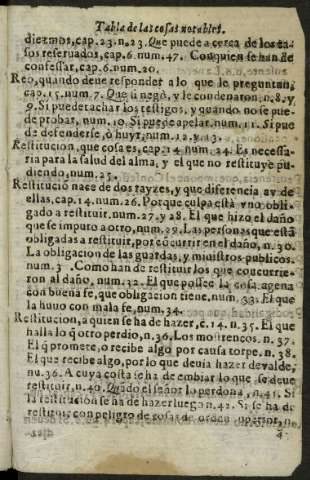 Tabla de las cosas notables.
diezmos, cap. 23. n. 23. Que puede a cerca de los ca-
sos reseruados, cap. 6. num. 47. Con quien se han de
confessar, cap. 6. num. 20.
Reo, quando deue responder a lo que le preguntan,
cap. 15. num. 7. Que si negò, y le condenaron, n. 8. y
9. Si puede tachar los testigos, y quando no se pue-
de probar, num. 10. Si puede apelar, num. 11. Si pue
de defenderse, ò huyr, num. 12. y 13.
Restitucion, que cosa es, cap. 14 num. 24. Es necessa-
ria para la salud del alma, y el que no restituye pu-
diendo, num. 25.
Restituciō nace de dos rayzes, y que diferencia ay de
ellas, cap. 14. num. 26. Porque culpa està vno obli-
gado a restituir. num. 27. y 28. El que hizo el daño
que se imputo a otro, num. 29. Las personas que estā
obligadas a restituir, por cōcurrir en el daño, n. 30.
La obligacion de las guardas, y ministros publicos.
num. 3 . Como han de restituir los que concurrie-
ron al daño, num. 32. El que possee la cosa agena
con buena fe, que obligacion tiene, num. 33. El que
la huuo con mala fe, num. 34.
Restitucion, a quien se ha de hazer, c. 14. n. 35. El que
halla lo q̄ otro perdio, n. 36. Los mostrencos. n. 37.
El q̄ promete, o recibe algo por causa torpe. n. 38.
El que recibe algo, por lo que deuia hazer devalde,
nu. 36. A cuya costa se ha de embiar lo que se deue
restituir, n. 40. Quādo el señor lo perdona, n. 41. Si
la restitucion se ha de hazer luego n. 42. Si se ha de
restituir con peligro de cosas de orden